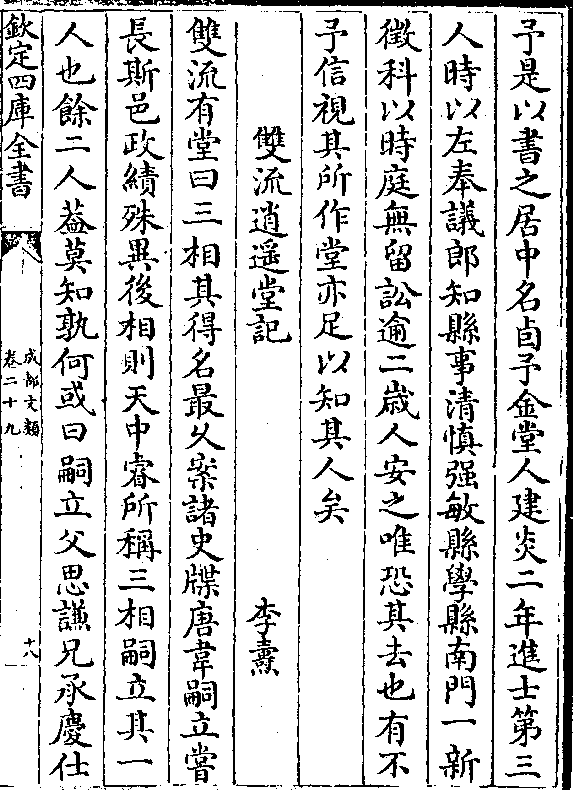 予是以書之居中名卣予金堂人建炎二年進士第三
人時以左奉議郎知縣事清慎强敏縣學縣南門一新
徵科以時庭無留訟逾二歳人安之唯恐其去也有不
予信視其所作堂亦足以知其人矣
雙流逍遥堂記 李燾
雙流有堂曰三相其得名最久案諸史牒唐韋嗣立嘗
長斯邑政績殊異後相則天中睿所稱三相嗣立其一
人也餘二人葢莫知孰何或曰嗣立父思謙兄承慶仕
欽定四庫全書
成都文類
卷二十九
十八